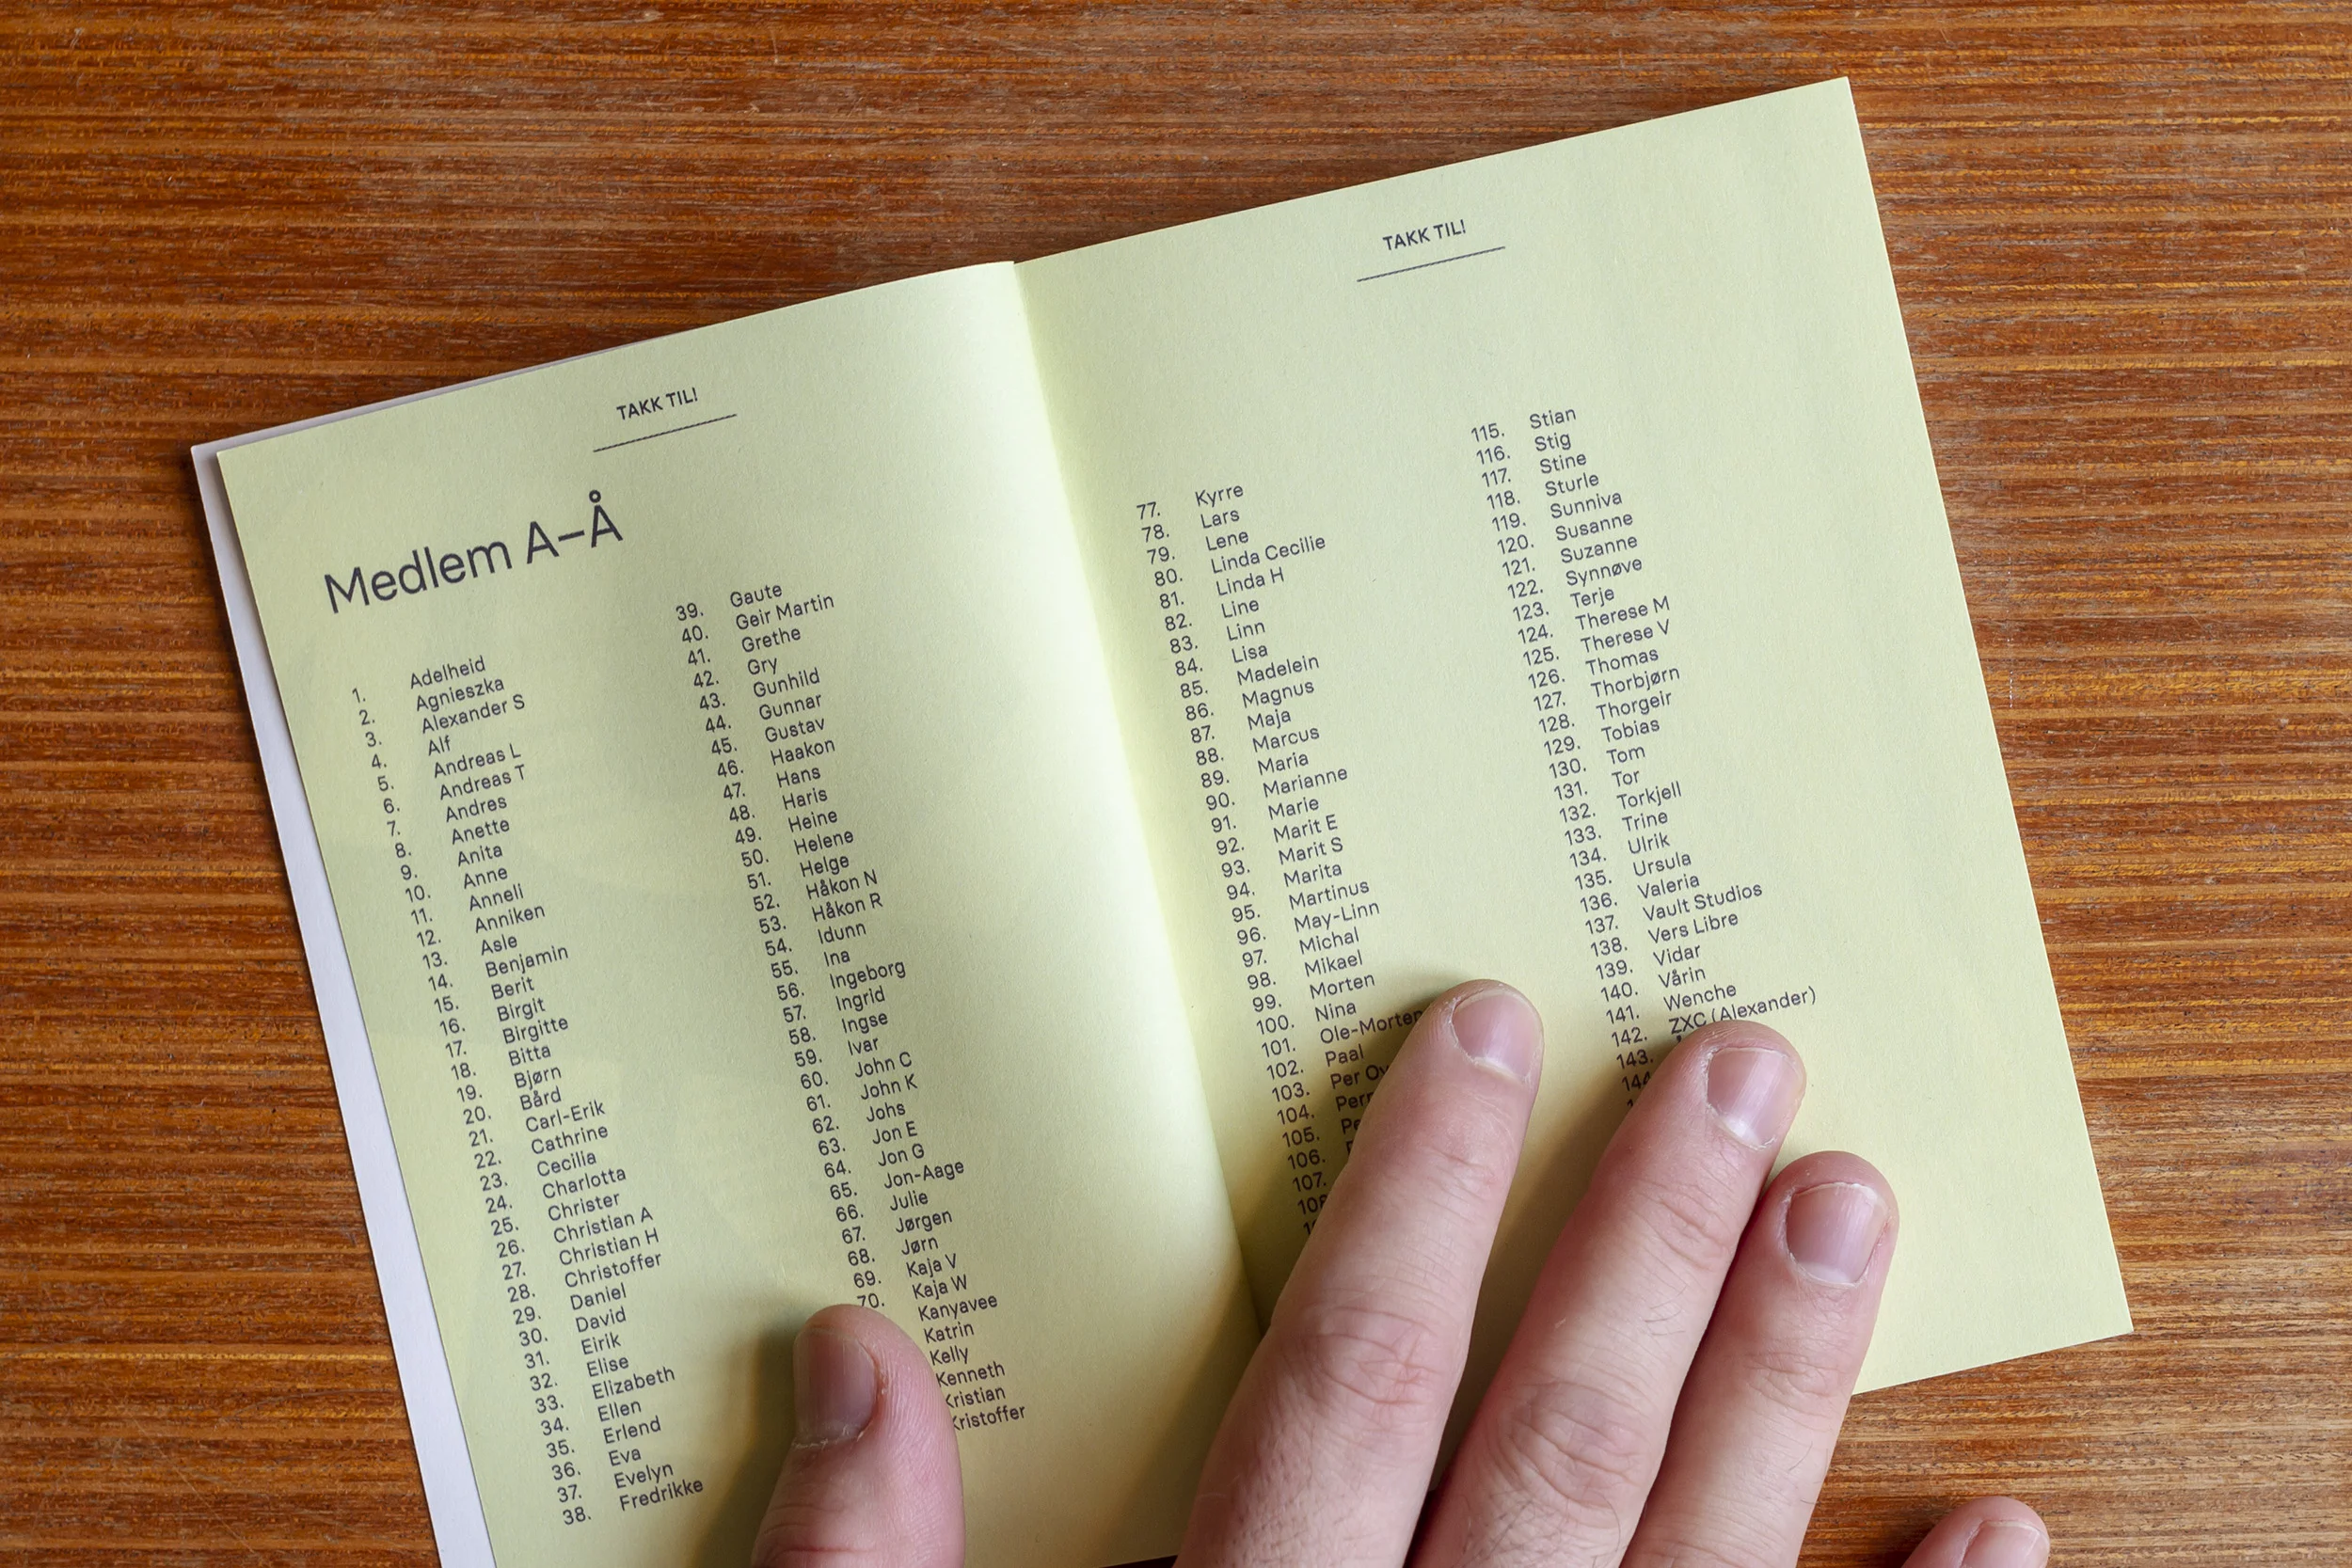 TAKK TIL!
Medlem A–Å
1. Adelheid
2. Agnieszka
3. Alexander S
4. Alf
5. Andreas L
6. Andreas T
7. Andres
8. Anette
9. Anita
10. Anne
11. Anneli
12. Anniken
13. Asle
14. Benjamin
15. Berit
16. Birgit
17. Birgitte
18. Bitta
19. Bjørn
20. Bård
21. Carl-Erik
22. Cathrine
23. Cecilia
24. Charlotta
25. Christer
26. Christian A
27. Christian H
28. Christoffer
29. Daniel
30. David
31. Eirik
32. Elise
33. Elizabeth
34. Ellen
35. Erlend
36. Eva
37. Evelyn
38. Fredrikke
39. Gaute
40. Geir Martin
41. Grethe
42. Gry
43. Gunhild
44. Gunnar
45. Gustav
46. Haakon
47. Hans
48. Haris
49. Heine
50. Helene
51. Helge
52. Håkon N
53. Håkon R
54. Idunn
55. Ina
56. Ingeborg
57. Ingrid
58. Ingse
59. Ivar
60. John C
61. John K
62. Johs
63. Jon E
64. Jon G
65. Jon-Aage
66. Julie
67. Jørgen
68. Jørn
69. Kaja V
70. Kaja W
Kanyavee
Katrin
Kelly
Kenneth
Kristian
Kristoffer
TAKK TIL!
77. Kyrre
78. Lars
79. Lene
80. Linda Cecilie
81. Linda H
82. Line
83. Linn
84. Lisa
85. Madelein
86. Magnus
87. Maja
88. Marcus
89. Maria
90. Marianne
91. Marie
92. Marit E
93. Marit S
94. Marita
95. Martinus
96. May-Linn
97. Michal
98. Mikael
99. Morten
100. Nina
101. Ole-Morten
102. Paal
103. Per
104.
105.
106.
107.
115. Stian
116. Stig
117. Stine
118. Sturle
119. Sunniva
120. Susanne
121. Suzanne
122. Synnøve
123. Terje
124. Therese M
125. Therese V
126. Thomas
127. Thorbjørn
128. Thorgeir
129. Tobias
130. Tom
131. Tor
132. Torkjell
133. Trine
134. Ulrik
135. Ursula
136. Valeria
137. Vault Studios
138. Vers Libre
139. Vidar
140. Vårin
141. Wenche
142. ZXC (Alexander)
143.